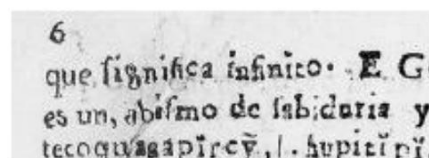 6
que ſignifica infinito. E G
es un, abiſmo de ſabiduria y